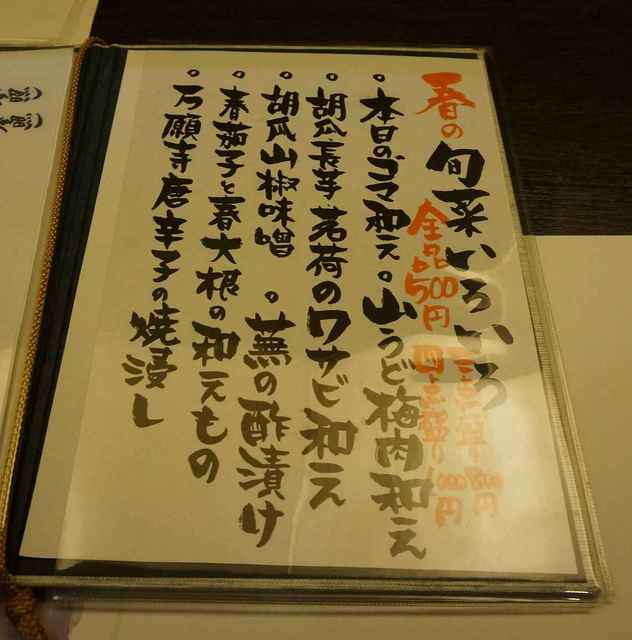 春の旬菜いろいろ
全品500円
三点盛り800円
四点盛り1000円
。本日のゴマ和え。山うど梅肉和え
。胡瓜長芋茗荷のワサビ和え
。胡瓜山椒味噌。蕪の酢漬け
。春茄子と春大根の和えもの
。万願寺唐辛子の焼浸し